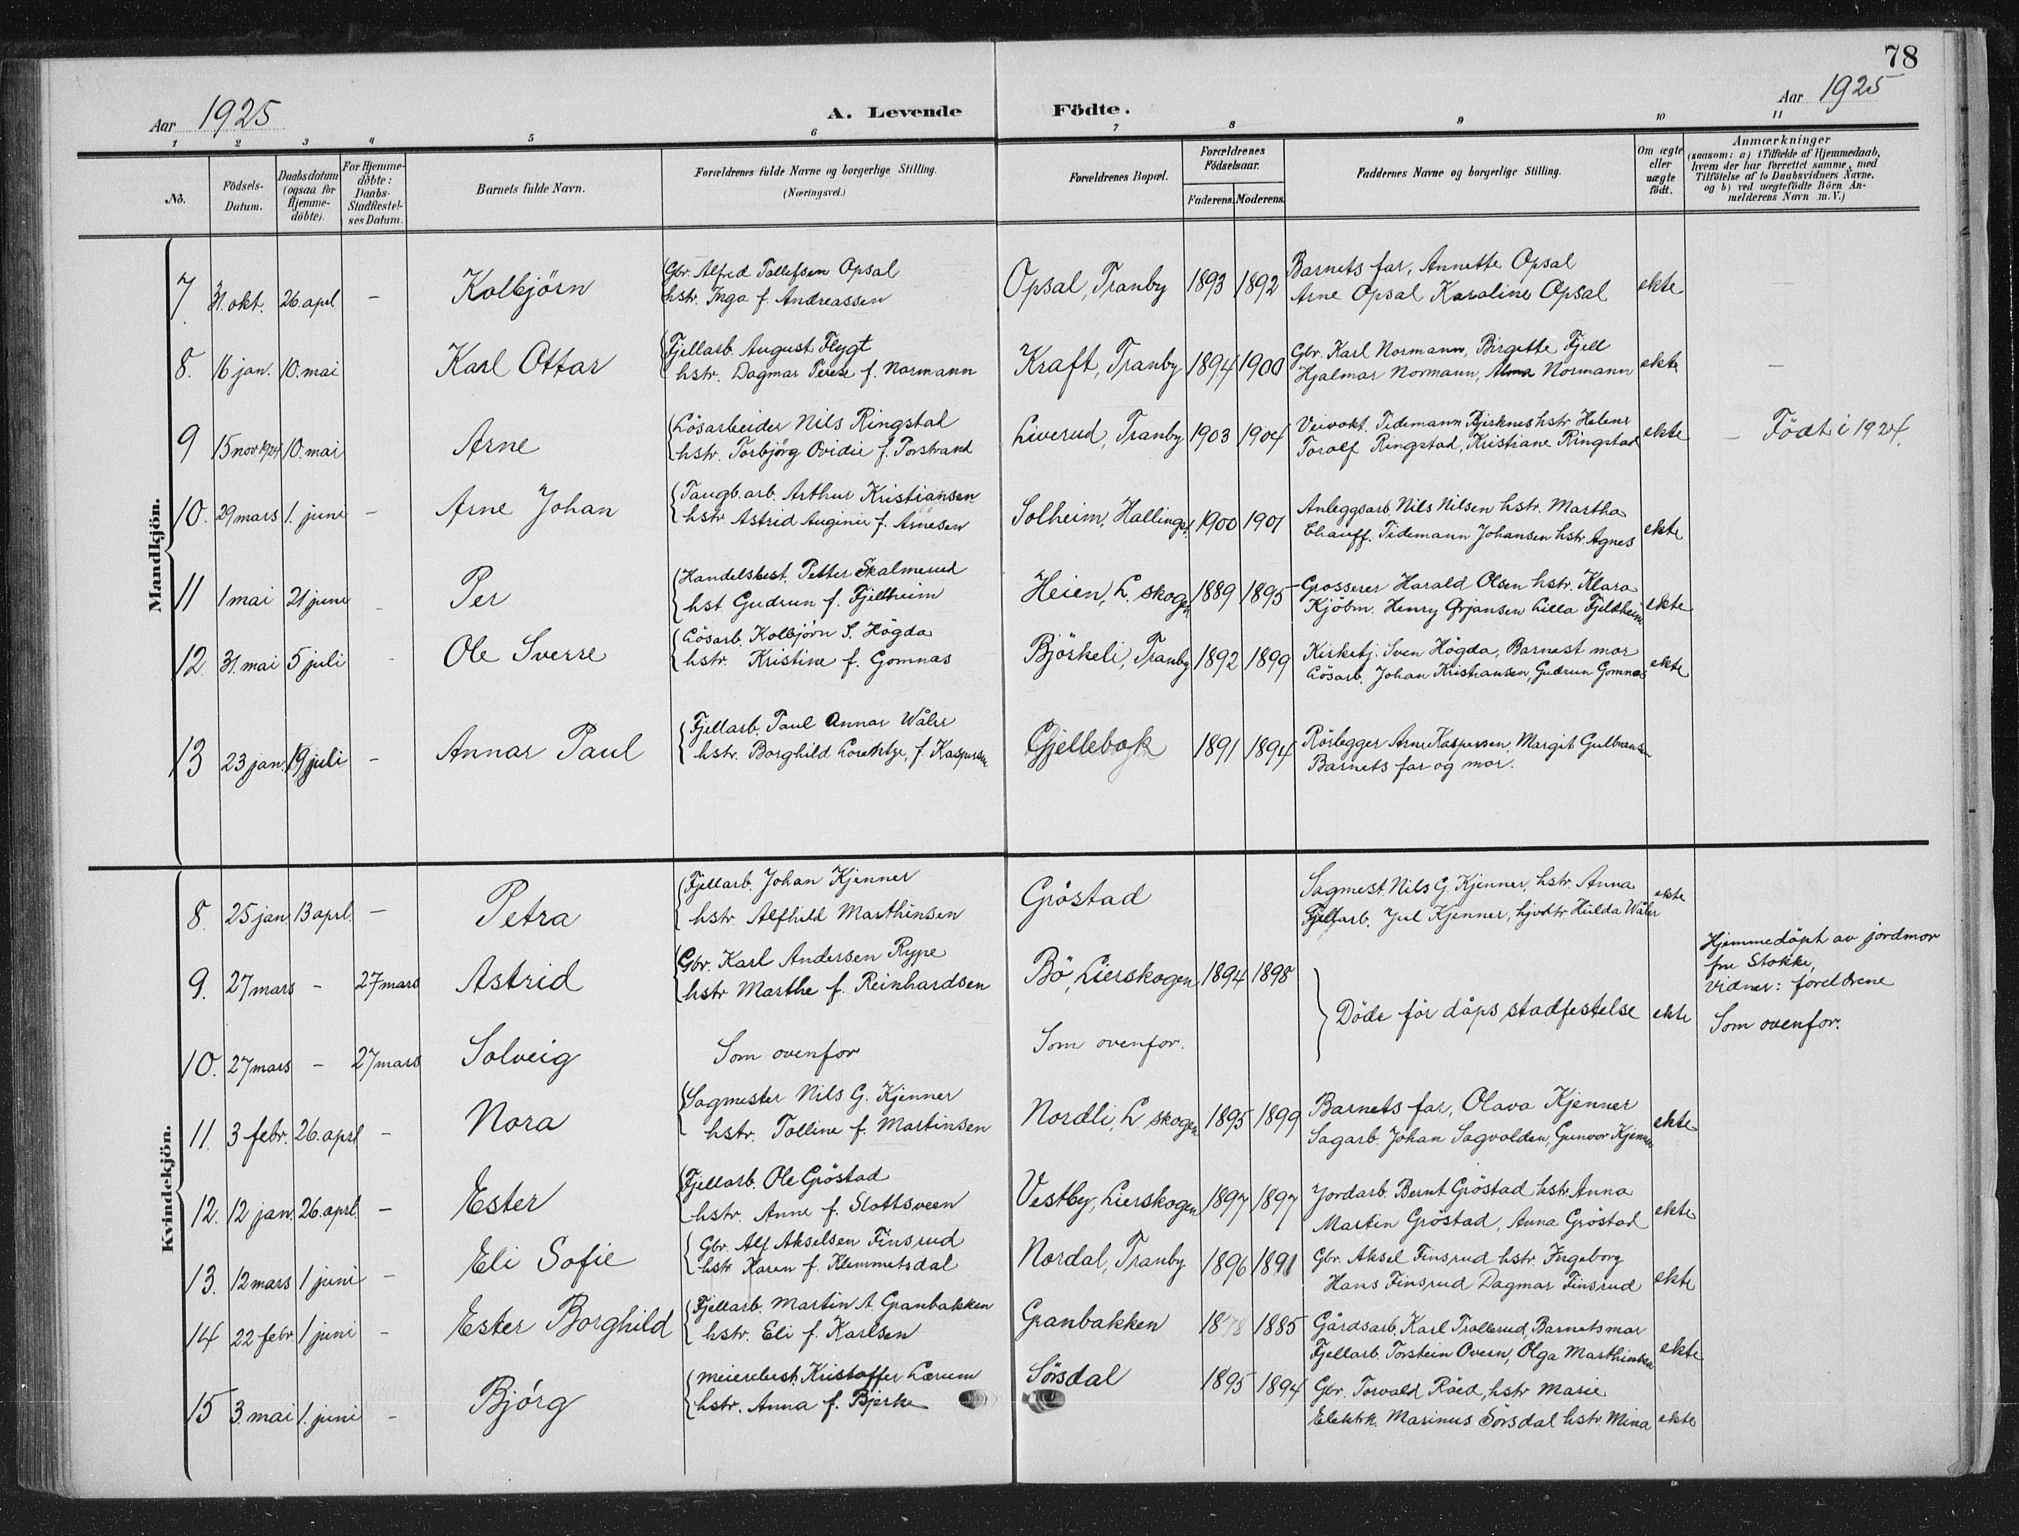 78
Aar 1925
A. Levende Födte.
Aar 1925
1 2 3 4 5 6 7 8 9 10 11
No.
Födsels-
Datum.
Daabsdatum
(ogsaa for
Hjemme-
döbte).
For Hjemme-
döbte:
Daabs-
Stadfæstel-
ses Datum.
Barnets fulde Navn.
Forældrenes fulde Navne og borgerlige Stilling.
(Næringsvei.)
Forældrenes Bopæl.
Forældrenes
Födselsaar.
Faderens. Moderens.
Faddernes Navne og borgerlige Stilling.
Om ægte
eller
uægte
födt.
Anmærkninger
(saasom: a) i Tilfælde af Hjemmedaab,
hvem der har forrettet samme, med
Tilföielse af to Daabsvidners Navne,
og b) ved uægtefödte Börn An-
melderens Navn m. V.)
Mandkjön.
7 31. okt. 26 apl. – Kolbjörn
Gbr. Alfred Tollefsen Opsal
hstr. Inga f. Andreassen
Opsal, Tranby 1893 1892
Barnets far, Annette Opsal
Arne Opsal Karoline Opsal
ekte –
8. 16 jan. 10. mai Karl Ottar
Fjellarb. August Flygt
hstr. Dagmar Terese f. Normann
Kraft, Tranby 1894 1900
Gbr. Karl Normann, Birgitte Fjell
Hjalmar Normann, Alma Normann
ekte –
9 15 nov 1924 10. mai Arne
Lösarbeider Nils Ringstad
hstr. Torbjörg Ovidie f. Porstrand
Liverud, Tranby 1903 1904
Veivokt. Tidemann Bjerknes hstr. Helene
Torolf Ringstad, Kristiane Ringstad
ekte – Født i 1924.
10. 29 mars 1. juni – Arne Johan
Taugb. arb. Arthur Kristiansen
hstr. Astrid Auginie f. Arnesen
Solheim, Hallingst. 1900 1901
Anleggsarb Nils Nilsen hstr. Martha
Chauff. Tidemann Johansen hstr. Agnes
ekte
11 1 mai 21 juni – Per
Handelsbest. Petter Skalmerud
hst. Gudrun f. Fjellheim
Heien, L. skogen 1889 1895
Grosserer Harald Olsen hstr. Klara
Kjöbm. Henry Ørjansen Lilla Fjellheim
ekte
12 31. mai 5 juli – Ole Sverre
Lösarb. Kolbjörn S. Högda
hstr. Kristine f. Gomnas
Björkeli, Tranby 1892 1899
Kirketj. Sven Högda, Barnest mor
Lösarb. Johan Kristiansen, Gudrun Gomnes
ekte
13 23 jan. 19 juli – Annar Paul
Fjellarb. Paul Annar Wåler
hstr. Borghild Lorentze, f. Kaspersen
Gjellebæk 1891 1894
Rörlegger Arne Kaspersen, Margit Gulbransen
Barnets far og mor.
Kvindekjön.
8. 25 jan 13 aprl. – Petra
Fjellarb. Johan Kjenner
hstr. Alfhild Marthinsen
Gröstad
Sagmest. Nils G. Kjenner, hstr. Anna
Fjellarb. Jul Kjenner, Hulda Wåler
ekte
9. 27 mars – 27 mars Astrid
Gbr. Karl Andersen Rype
hstr Marthe f. Reinhardsen
Bö, Lierskogen 1894 1898
Döde för dåps stadfestelse ekte
Hjemmedöpt av jordmor
fru Stokke,
vidner: foreldrene
10. 27 mars – 27 mars Solveig
Som ovenfor
Som ovenfor.
Som ovenfor.
11. 3 febr. 26. aprl – Nora
Sagmester Nils G. Kjenner
hstr. Talline f. Martinsen
Nordli, L skogen 1895 1899
Barnets far, Olava Kjenner
Sagarb. Johan Sagvolden, Gunvor Kjenner
ekte
12. 12 jan. 26. aprl. – Ester
Fjellarb. Ole Gröstad
hstr. Anne f. Slottsveen
Vestby, Lierskogen 1897 1897
Jordarb. Bernt Gröstad hstr. Anna
Martin Gröstad, Anna Gröstad
ekte
13. 12 mars 1 juni – Eli Sofie
Gbr. Alf Akselsen Finsrud
hstr Karen f. Klemmetsdal
Nordal, Tranby 1896 1891
Gbr. Aksel Finsrud hstr. Ingeborg
Hans Finsrud Dagmar Finsrud
ekte
14 22 febr 1 juni – Ester Borghild
Fjellarb. Martin A. Granbakken
hstr. Eli f. Karlsen
Granbakken 1878 1885
Gårdsarb. Karl Trollerud, Barnets mor
Fjellarb. Torstein Oveen, Olga Marthinsen
ekte
15 3. mai 1. juni – Bjørg
Meieribest. Kristoffer Lærum
hstr. Anna f. Bjerke
Sörsdal 1895 1894
Gbr. Torvald Röed, hstr Marie
Elektrk. Marinus Sörsdal hstr. Mina
ekte